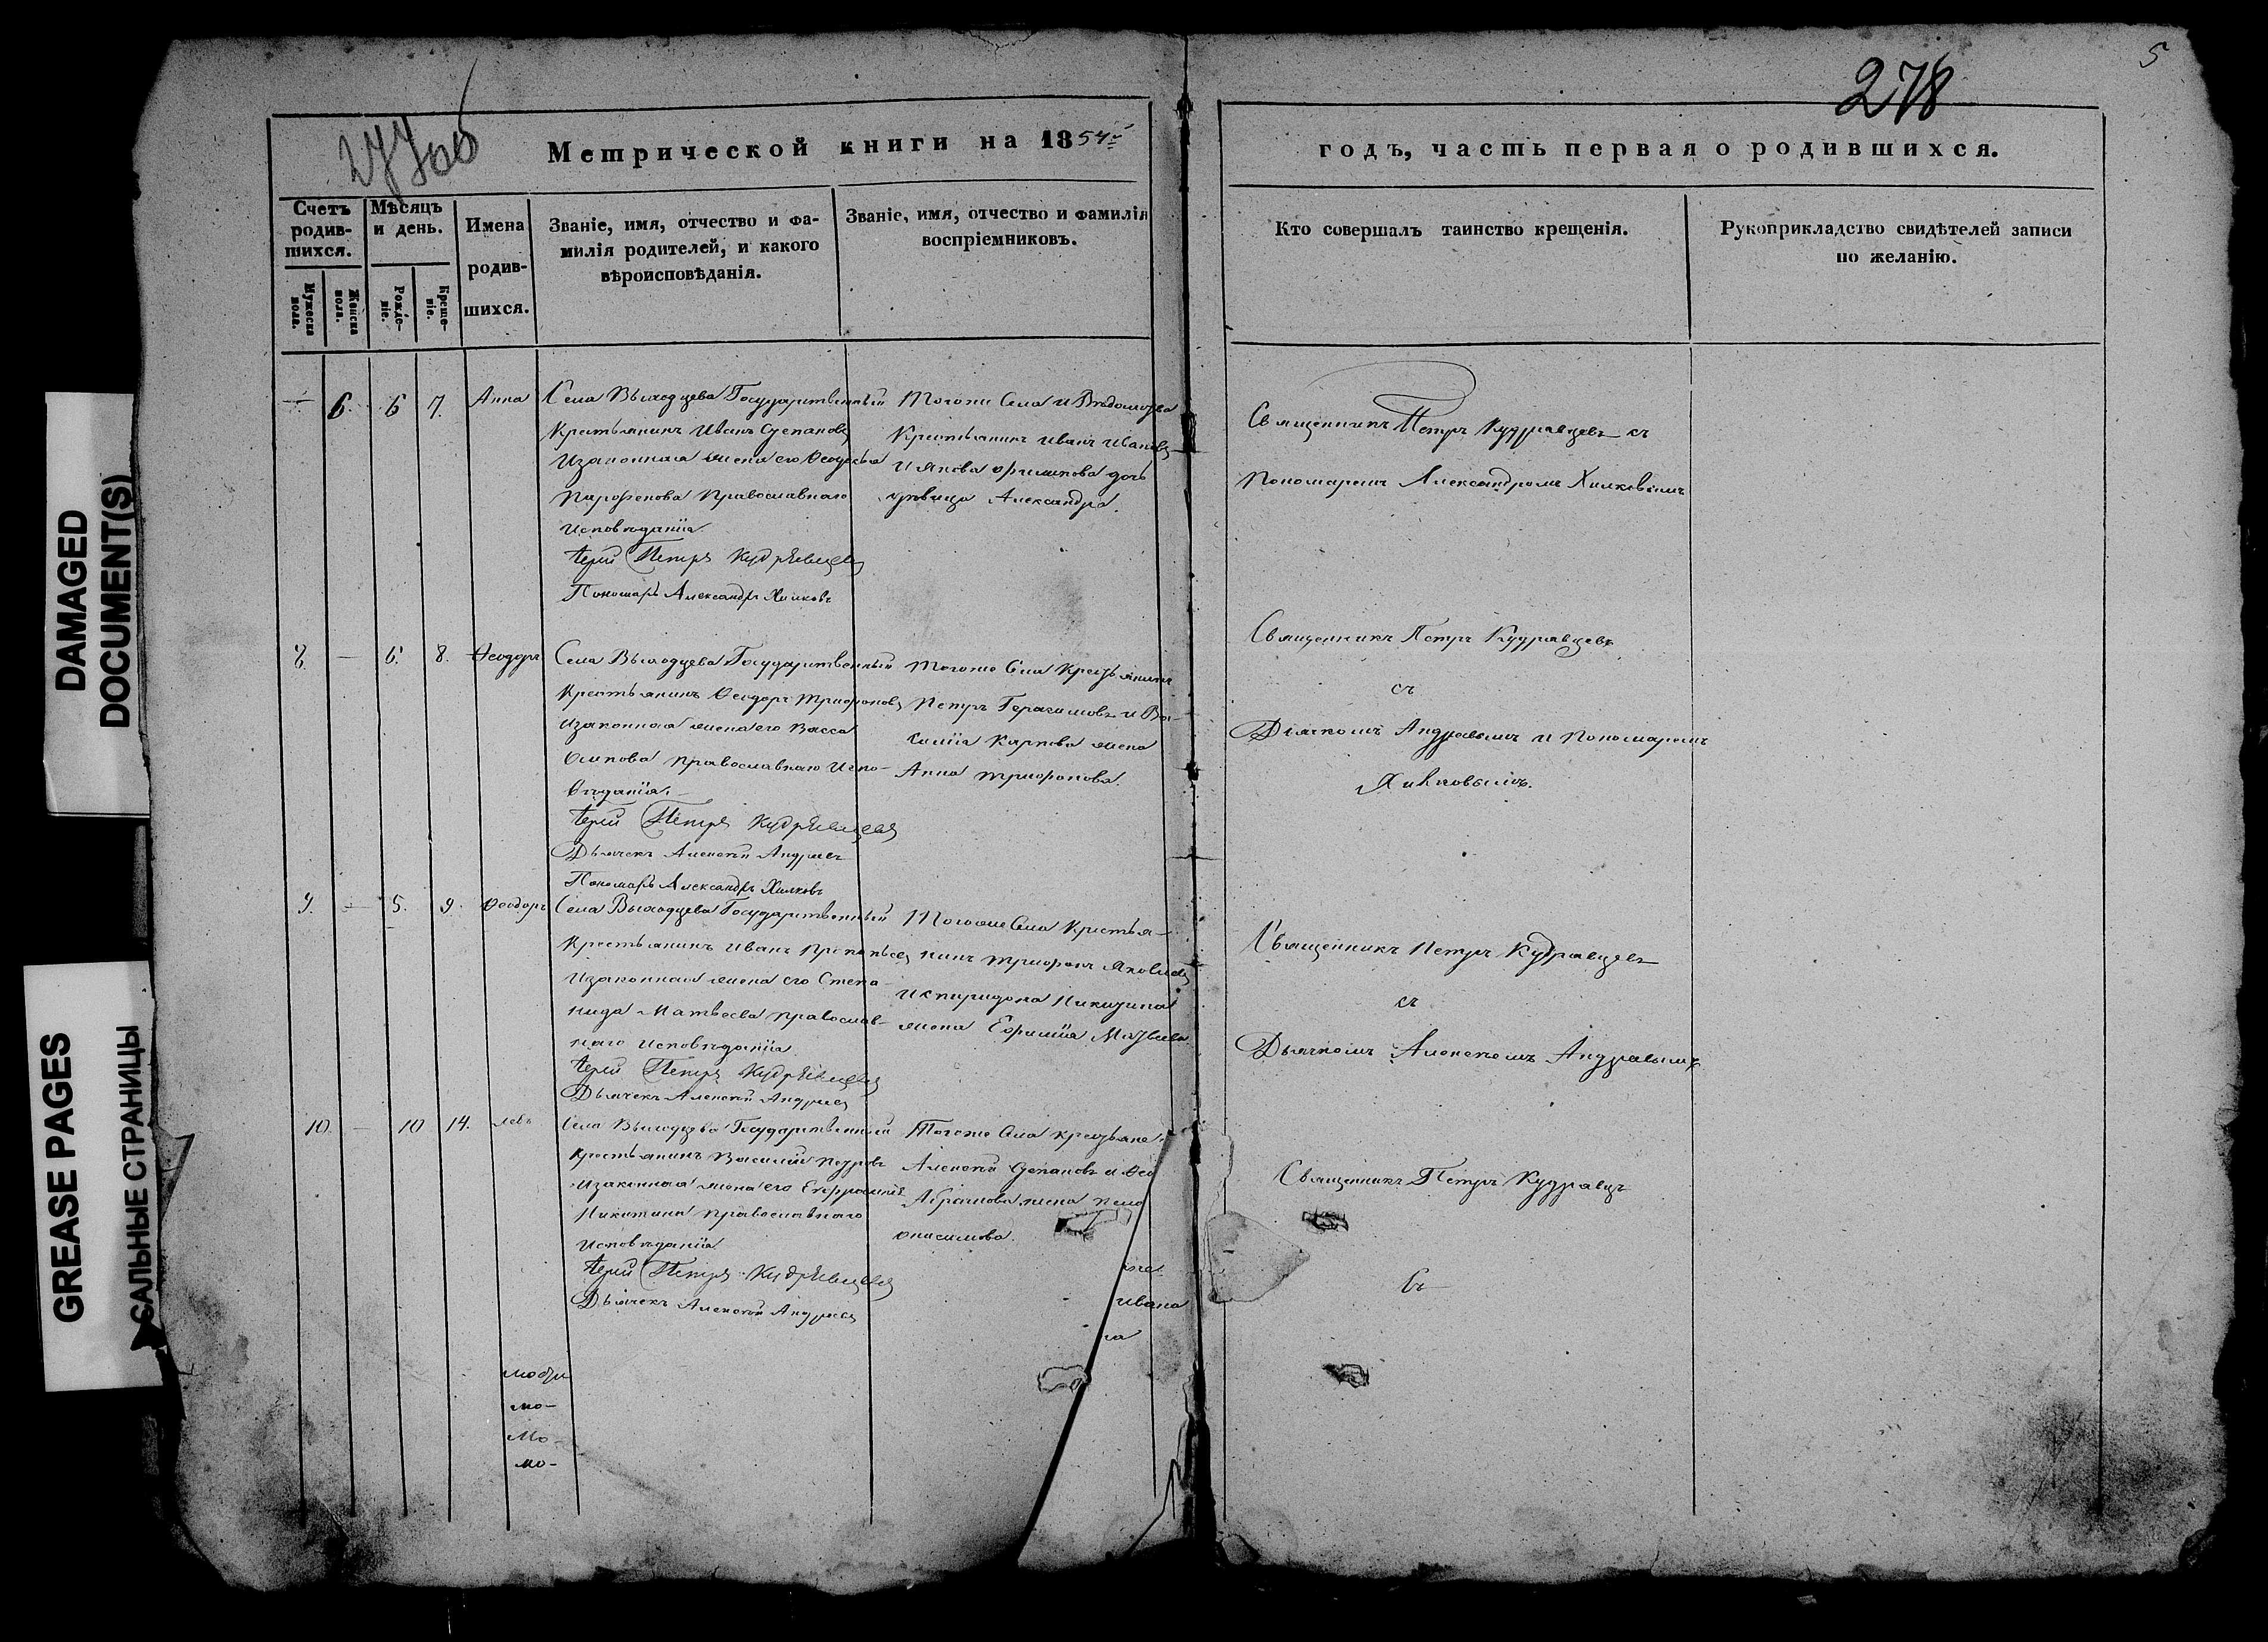 5
278
277об
Метрической книги на 1854й
годъ, часть первая о родившихся.
Счетъ родив-шихся.
Мужеска пола.
Женска пола.
Мѣсяцъ и день.
Рожде-ніе.
Креще-ніе.
Имена родив-шихся.
Званіе, имя, отчество и фа-
милія родителей, и какого
вѣроисповѣданія.
Званіе, имя, отчество и фамилія
воспріемниковъ.
Кто совершалъ таинство крещенія.
Рукоприкладство свидѣтелей записи
по желанію.
— 6. 6 7. Анна
Села Выходцева Государственный
Крестьянинъ Иванъ Степановъ
и законная жена его
Парфенова Православнаго
Исповѣданія
Іерей Петръ Кудрявцевъ
Пономарь Александръ Хилковъ
Тогоже Села и
Крестьянинъ Иванъ Ивановъ
и Якова Филипова дочь
дѣвица Александра.
Священникъ Петръ Кудрявцевъ съ
Пономаремъ Александромъ Хилковымъ
8. — 6. 8. Ѳеодоръ
Села Выходцева Государственный
Крестьянинъ Ѳеодоръ Трифоновъ
и законная жена его Васса
Осипова Православнаго Испо-
вѣданія.
Іерей Петръ Кудрявцевъ
Дьячекъ Алексѣй Андреевъ
Пономарь Александръ Хилковъ
Тогоже Села Крестьянинъ
Петръ Герасимовъ и Ва-
силія Карпова жена
Анна Трифонова.
Священникъ Петръ Кудрявцевъ
съ
Дьячкомъ Андревымъ и Пономаремъ
Хилковымъ.
9. — 5. 9. Ѳеодоръ
Села Выходцева Государственный
Крестьянинъ Иванъ
и законная жена его Степа-
нида Матвеева Православ-
наго Исповѣданія
Іерей Петръ Кудрявцевъ
Дьячекъ Алексѣй Андреевъ
Тогоже Села Крестья-
нинъ Трифонъ Яковлевъ
и Спиридона Никитина
жена Ефимія Матвеева
Священникъ Петръ Кудрявцевъ
съ
Дьячкомъ Алексѣемъ Андревымъ
10. — 10 14. Левъ
Села Выходцева Государственный
Крестьянинъ Василій Петровъ
и законная жена его
Никитина Православнаго
Исповѣданія
Іерей Петръ Кудрявцевъ
Дьячекъ Алексѣй Андреевъ
Тогоже Села Крестьяне
Алексѣй Степановъ и
жена
Онисимова.
Священникъ Петръ Кудрявцевъ
Съ
Ивана
на
мо-
мо-
мо-
DAMAGED
DOCUMENT(S)
GREASE PAGES
САЛЬНЫЕ СТРАНИЦЫ